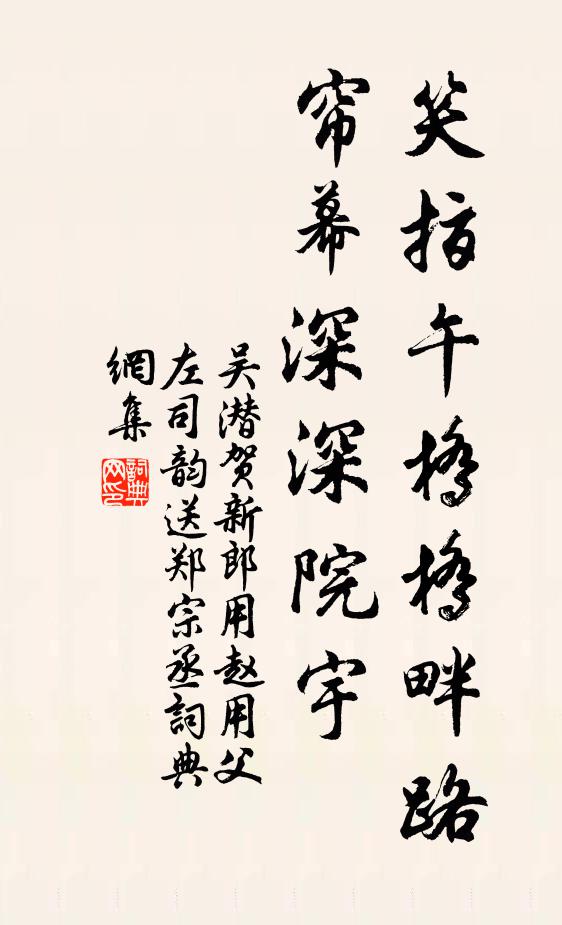 笑指午橋橋畔路
帘幕深深院宇
吴潜贺新郎用赵用父
左司韵送郑宗丞詞典
網集
詞典
网印